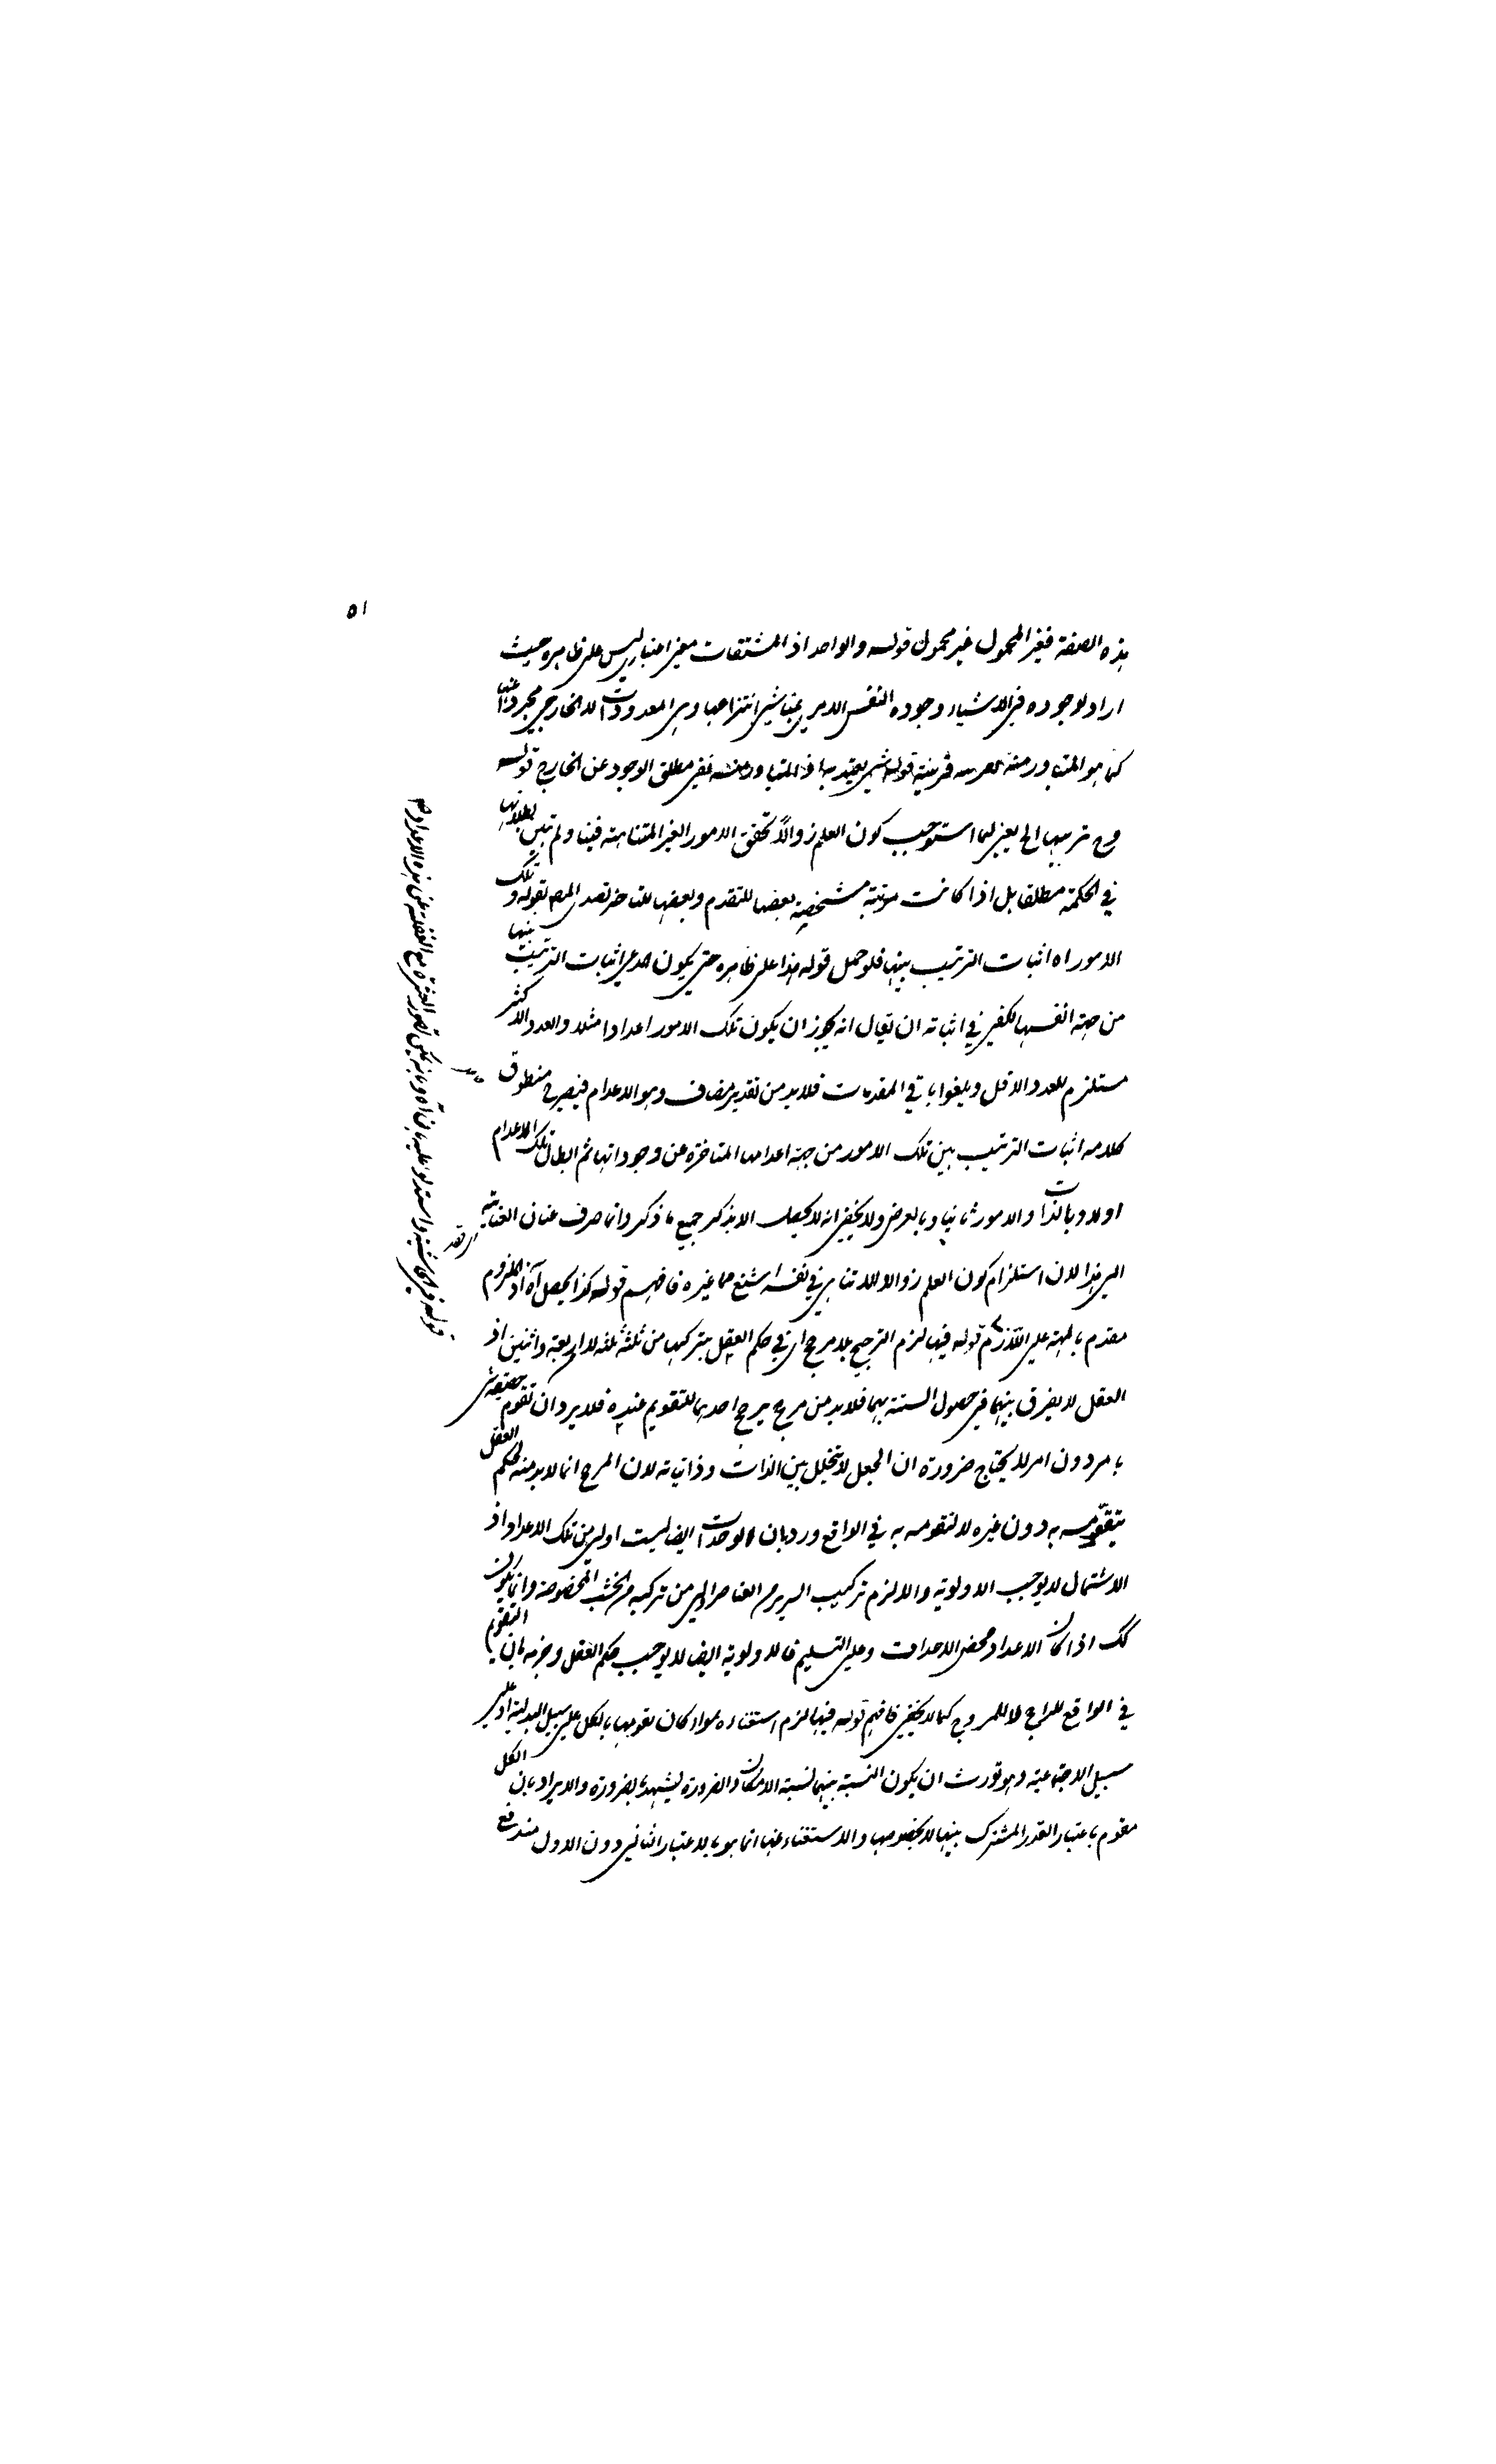 ٥١
هذه الصفة فغير المحمول غير محمول قوله والواحد اذ المشتقات معنى اعتباري ليس على ظاهره حيث
اراد بوجوده في الاشياء وجوده النفس الامري بمناشي انتزاعها وهي المعدودات لا الخارجي مجردا عنها
كما هو المتبادر منه بقرينة قوله شي يعتد به اذ المتبادر منه نفي مطلق الوجود عن الخارج قوله
وح ترتبها الخ يعني لما استوجب كون العلم زوالا تحقق الامور الغير المتناهية فينا ولم تبين بطلانها
في الحكمة مطلقا بل اذا كانت مرتبة مشخصية بعضها للتقدم وبعضها للتاخر تصدى المص بقوله وتلك
الامور اه اثبات الترتيب بينها فلو حمل قوله هذا على ظاهره حتى يكون المدعى اثبات الترتيب بينها
من جهة انفسها لكفى في اثباته ان يقال انه يجوز ان يكون تلك الامور اعدادا مثلا والعدد الاكثر
مستلزم للعدد الاقل ويلغوا باقي المقدمات فلابد من تقدير مضاف وهو الاعدام فيصير ح منطوق
كلامه اثبات الترتيب بين تلك الامور من جهة اعدامها المتاخرة عن وجوداتها ثم ابطال تلك الاعدام
اولا وبالذات والامور ثانيا وبالعرض ولا يخفى انه لا يحصل الا بذكر جميع ما ذكر وانما صرف عنان العناية
الى هذا لان استلزام كون العلم زوالا للاتناهي في نفسه اشنع مما غيره فافهم قوله كذا يحصل آه اذ الملزوم
مقدم بالمهية على اللازم قوله فيها لزم الترجيح بلا مرجح اي في حكم العقل بتركبها من ثلثة ثلثة لا اربعة واثنين اذ
العقل لا يفرق بينهما في حصول الستة بهما فلابد من مرجح يرجح احديهما للتقويم عنده فلا يرد ان تقوم حقيقة شي
بامر دون امر لا يحتاج ضرورة ان الجعل لا يتخلل بين الذات وذاتياته لان المرجح انما لابد منه لحكم العقل
بتقومه به دون غيره لا لتقومه به في الواقع ورد بان الوحدات ايضا ليست اولى من تلك الاعداد اذ
الاشتمال لا يوجب الاولوية والا لزم تركيب السرير من العناصر اولى من تركبه من الخشب المخصوصة وانما يكون
كك اذا كان الاعداد محض الاحداث وعلى التسليم فالاولوية ايضا لا يوجب حكم العقل وجزمه بان التقوم
في الواقع للراجح لا للمرجوح كما لا يخفى فافهم قوله فيها لزم استغناءه سواء كان تقومها بالكل على سبيل البدلية او على
سبيل الاجتماعية وهو تورث ان يكون النسبة بينهما نسبة الامكان والضرورة يشهد بضرورة والايراد بان الكل
مقوم باعتبار القدر المشترك بينها لا بخصوصها والاستغناء عنها انما هو بالاعتبار الثاني دون الاول مندفع